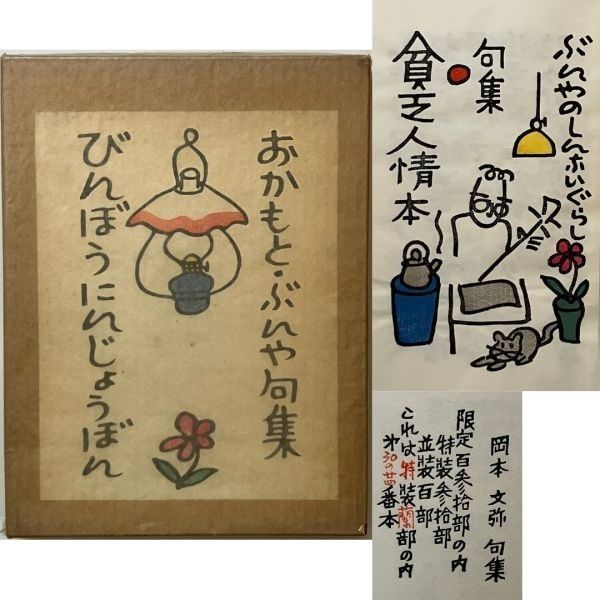 おかもと・ぶんや句集
びんぼうにんじょうぼん
ぶんやのしんホいぐらし
句集
貧乏人情本
岡本文弥句集
限定百参拾部の内
特装参拾部
並装百部
これは特装蘭部の内
才30の廿四番本